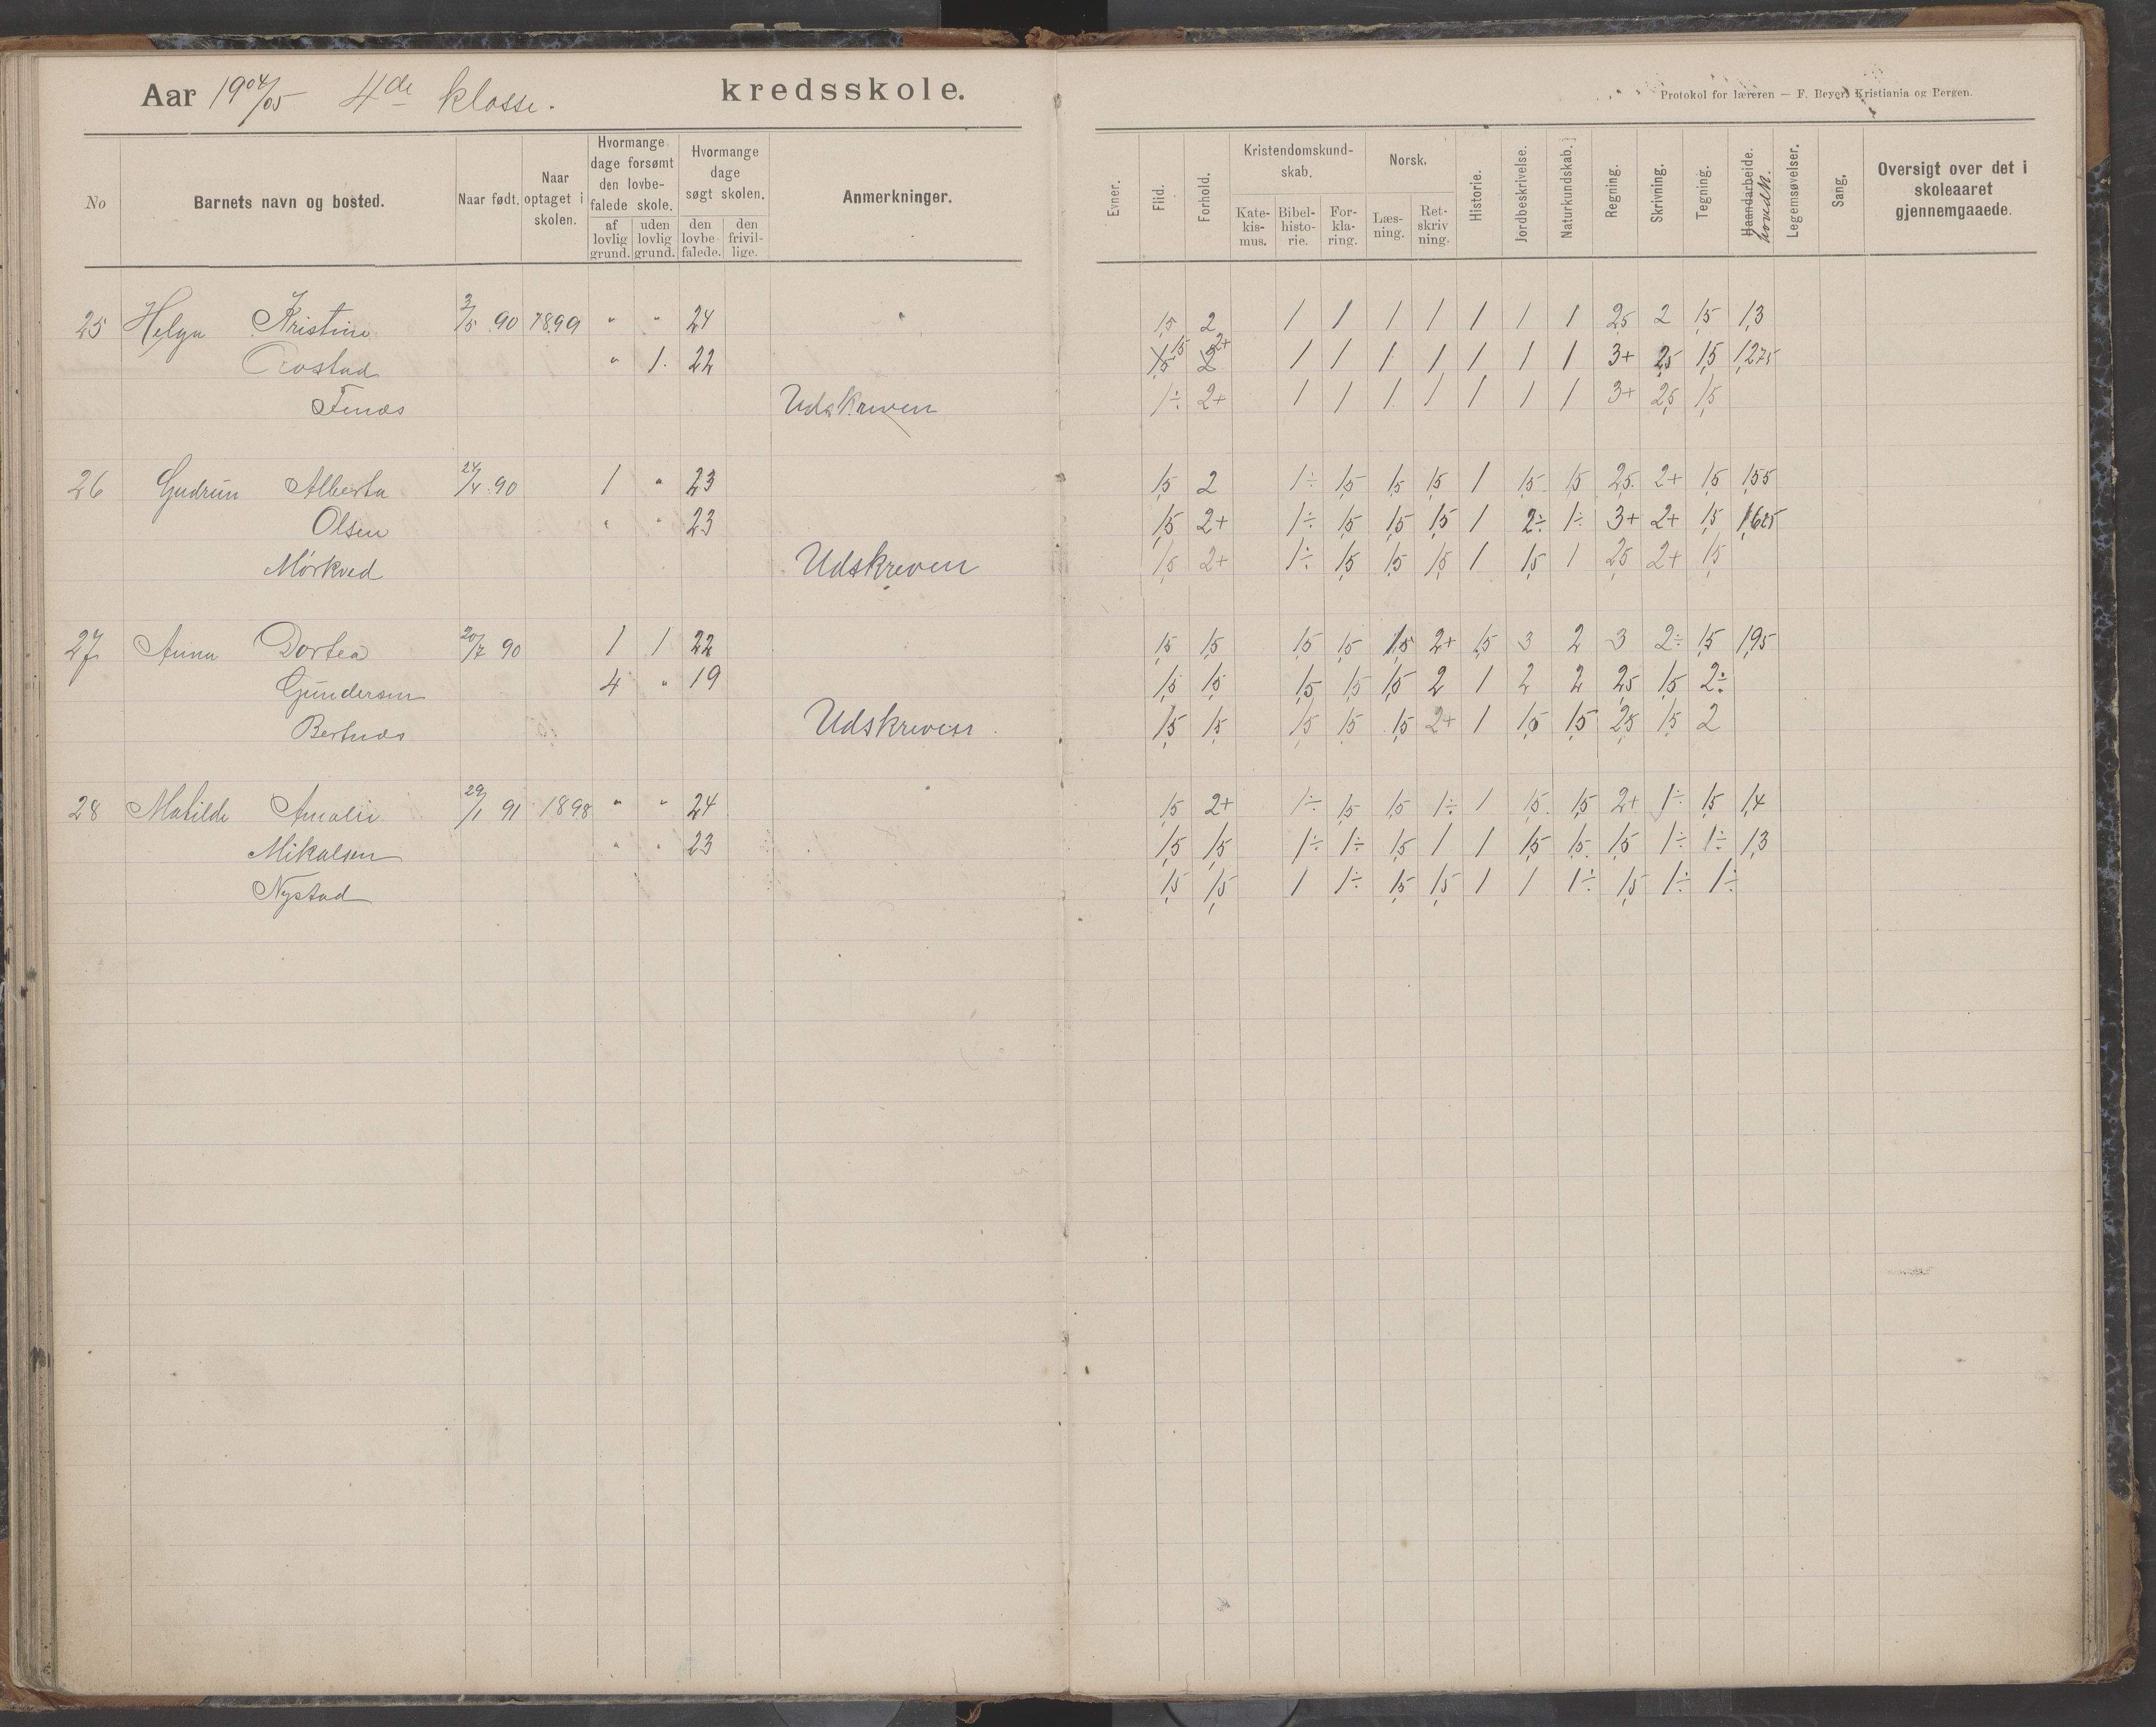 Aar 1904/05 4de klasse. kredsskole.
Protokol for læreren — F. Beyer, Kristiania og Bergen.
No
Barnets navn og bosted.
Naar født.
Naar optaget i skolen.
Hvormange dage forsømt den lovbefalede skole.
af lovlig grund.
uden lovlig grund.
Hvormange dage søgt skolen.
den lovbefalede.
den frivillige.
Anmerkninger.
Evner.
Flid.
Forhold.
Kristendomskundskab.
Katekismus.
Bibelhistorie.
Forklaring.
Norsk.
Læsning.
Retskrivning.
Historie.
Jordbeskrivelse.
Naturkundskab.
Regning.
Skrivning.
Tegning.
Haandarbeide.
hovedk.
Legemsøvelser.
Sang.
Oversigt over det i skoleaaret gjennemgaaede.
25 Helga Kristine 3/5 90 1899 " " 24 1,5 2 1 1 1 1 1 1 1 2,5 2 1,5 1,3
" 1. 22 1,5 2+ 1 1 1 1 1 1 1 3+ 2,5 1,5 1,275
Udskreven 1÷ 2+ 1 1 1 1 1 1 1 3+ 2,5 1,5
26 Gudrun Alberta 24/4 90 1 " 23 1,5 2 1÷ 1,5 1,5 1,5 1 1,5 1,5 2,5 2+ 1,5 1,55
Olsen " " 23 1,5 2+ 1÷ 1,5 1,5 1,5 1 2÷ 1÷ 3+ 2+ 1,5 1,625
Mørkved Udskreven 1,5 2+ 1÷ 1,5 1,5 1,5 1 1,5 1 2,5 2+ 1,5
27 Anna Dortea 20/7 90 1 1 22 1,5 1,5 1,5 1,5 1,5 2+ 1,5 3 2 3 2÷ 1,5 1,95
Gundersen 4 " 19 1,5 1,5 1,5 1,5 1,5 2 1 2 2 2,5 1,5 2÷
Bertnes Udskreven 1,5 1,5 1,5 1,5 1,5 2+ 1 1,5 1,5 2,5 1,5 2
28 Matilde Amalie 29/1 91 1898 " " 24 1,5 2+ 1÷ 1,5 1,5 1÷ 1 1,5 1,5 2+ 1÷ 1,5 1,4
Mikalsen " " 23 1,5 1,5 1÷ 1÷ 1,5 1 1 1,5 1,5 1,5 1÷ 1÷ 1,3
Nystad 1,5 1,5 1 1÷ 1,5 1,5 1 1 1÷ 1,5 1÷ 1÷